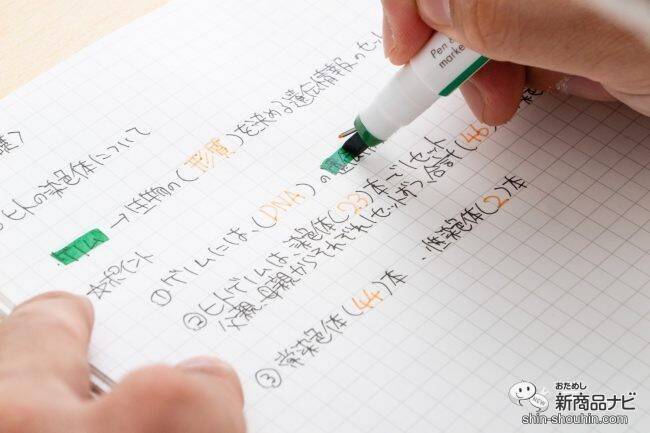 ヒトの染色体について
ゲノム
生物の(形質)を決める遺伝情報のセッ
ポイント
① ゲノムには、(DNA)の
② ヒトゲノムは、染色体(23)本で1セット
父親、母親からそれぞれ1セットずつ、合計(46)
③ 常染色体(44)本、性染色体(2)本
Pen &
marke
NEW
おためし
新商品ナビ
shin-shouhin.com